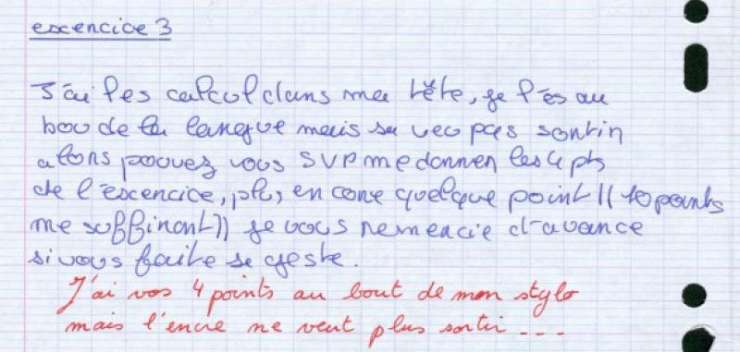 excencice 3
J'ai les calcul dans ma tête, je l'es au
bou de la langue mais sa veu pas sontin
alons pouvez vous SVP me donnen les 4 pts
de l'excencice, plus encone quelque point (( 10 points
me suffinont)) je vous nemencie d'avance
si vous faite se geste.
J'ai vos 4 points au bout de mon stylo
mais l'encre ne veut plus sortir ...